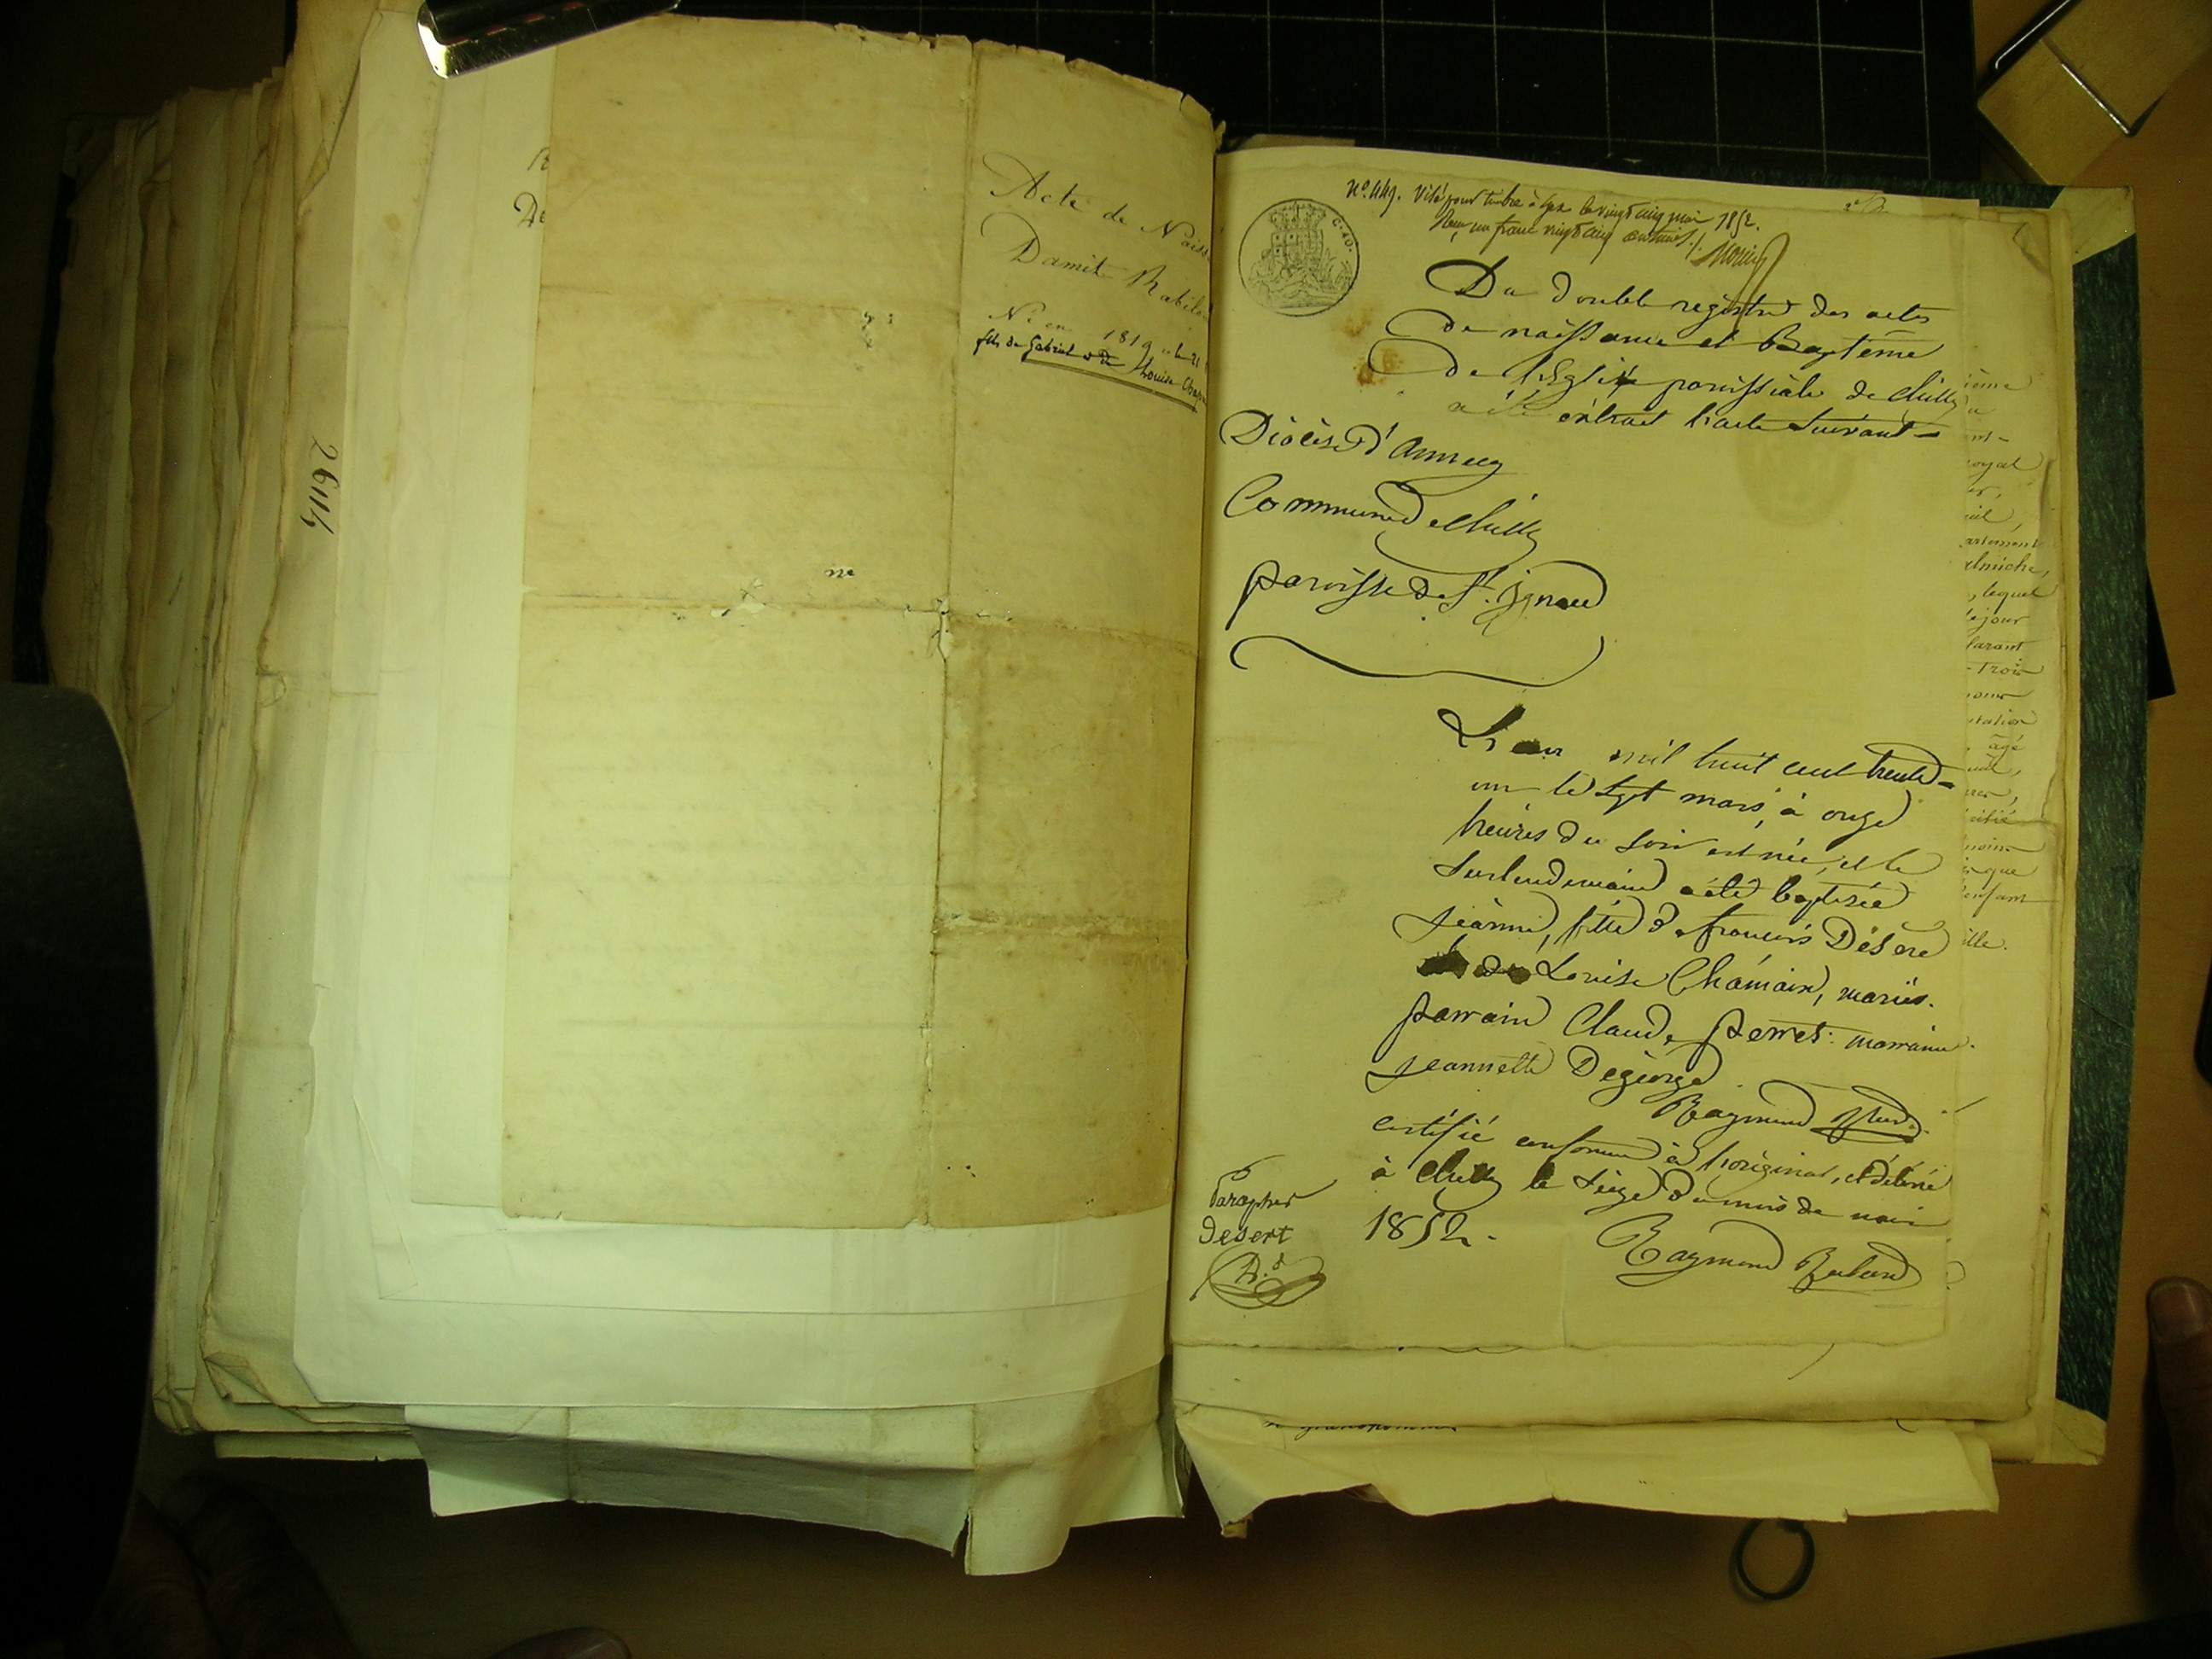 Acte de Naiss
Damit Rabilo
Né en 1819 le 21
fils de Gabriel et de Louise Chap
26114
De
me
N.º 449. Visé pour timbre à Gex le vingt cinq mai 1852.
Reçu un franc vingt cinq centimes.
C. 40.
Du double registre des actes
de naissance et Baptême
de l'Eglise paroissiale de Chilly
a été extrait l'acte suivant
Diocèse d'Annecy
Commune de Chilly
paroisse de St. Ignace
L'an mil huit cent trente-
un le sept mars, à onze
heures du soir est née, et le
surlendemain a été baptisée
jeanne, fille de françois Déséré
de Louise Chamain, mariés.
parrain Claude perret: marraine
jeannette Degeorge.
Raymond
certifié conforme à l'original, et délivré
à Chilly le seize du mois de mai
1852.
Raymond
Parapher
Desert
D.d
ième
oyal
artement
, lequel
ejour
larant
Trois
tation
âgé
que
enfant
ille.